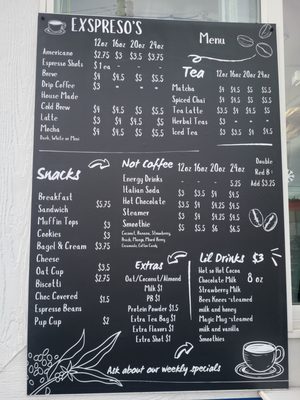 EXSPRESO'S
Menu
12oz 16oz 20oz 24oz
Americano $2.75 $3 $3.5 $3.75
Espresso Shots $1 ea - - -
Breve $4 $4.5 $5 $5.5
Drip Coffee $3 - - -
House Made
Cold Brew $4 $4.5 $5 $5.5
Latte $3 $4 $4.5 $5
Mocha $4 $4.5 $5 $5.5
Dark, White or Mexi
Tea 12oz 16oz 20oz 24oz
Matcha $4 $4.5 $5 $5.5
Spiced Chai $4 $4.5 $5 $5.5
Tea Latte $3 $4 $4.5 $5
Herbal Teas $3 - - -
Iced Tea $3 $3.5 $4 $4.5
Snacks
Breakfast
Sandwich $5.75
Muffin Tops $3
Cookies $3
Bagel & Cream $3.75
Cheese
Oat Cup $3.5
Biscotti $2.75
Choc Covered $1.5
Espresso Beans
Pup Cup $2
Not Coffee 12oz 16oz 20oz 24oz
Energy Drinks - - - 5.25
Italian Soda $3 $3.5 $4 $4.5
Hot Chocolate $3.5 $4 $4.25 $4.5
Steamer $3 $4 $4.25 $4.5
Smoothie $5 $5.5 $6 $6.5
Double
Red 8
Add $3.25
Extras
Oat/Coconut/Almond
Milk $1
PB $1
Protein Powder $1.5
Extra Tea Bag $1
Extra Flavors $1
Extra Shot $1
Lil Drinks $3
Hot or Hot Cocoa
Chocolate Milk 8 oz
Strawberry Milk
Bees Knees -steamed
milk and honey
Magic Mug -steamed
milk and vanilla
Smoothies
Ask about our weekly specials